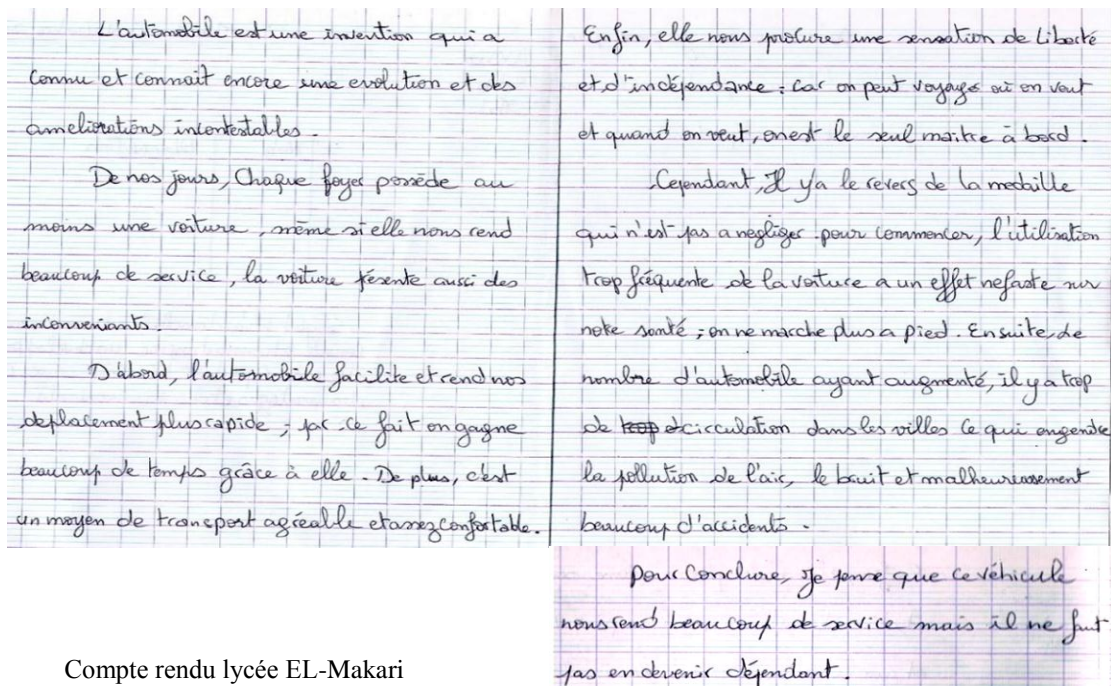 L'automobile est une invention qui a
connu et connait encore une evolution et des
ameliorations incontestables.
De nos jours, Chaque foyer possède au
moins une voiture, même si elle nous rend
beaucoup de service, la voiture présente aussi des
inconveniants.
D'abord, l'automobile facilite et rend nos
deplacement plus rapide ; par ce fait on gagne
beaucoup de temps grâce à elle. De plus, c'est
un moyen de transport agréable et assez confortable.
Enfin, elle nous procure une sensation de Liberté
et d'indépendance : car on peut voyage où on veut
et quand on veut, on est le seul maitre à bord.
Cependant, Il y'a le revers de la medaille
qui n'est pas a negliger pour commencer, l'utilisation
trop fréquente de la voiture a un effet nefaste sur
notre santé ; on ne marche plus a pied. Ensuite, le
nombre d'automobile ayant augmenté, il y a trop
de trop de circulation dans les villes ce qui engendre
la pollution de l'air, le bruit et malheureusement
beaucoup d'accidents.
pour Conclure, Je pense que ce véhicule
nous rend beaucoup de service mais il ne faut
pas en devenir dépendant.
Compte rendu lycée EL-Makari